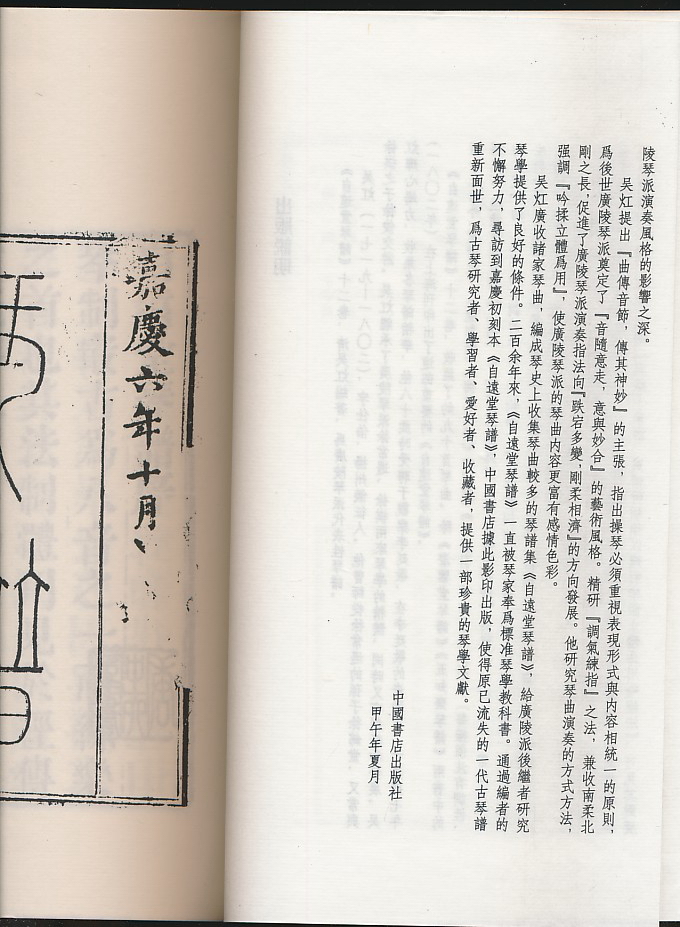 陵琴派演奏風格的影響之深。
吴灴提出『曲傳音節，傳其神妙』的主張，指出操琴必須重視表現形式與内容相統一的原則，
爲後世廣陵琴派奠定了『音隨意走，意與妙合』的藝術風格。精研『調氣練指』之法，兼收南柔北
剛之長，促進了廣陵琴派演奏指法向『跌宕多變，剛柔相濟』的方向發展。他研究琴曲演奏的方式方法，
强調『吟揉立體爲用』，使廣陵琴派的琴曲内容更富有感情色彩。
吴灴廣收諸家琴曲，編成琴史上收集琴曲較多的琴譜集《自遠堂琴譜》，給廣陵派後繼者研究
琴學提供了良好的條件。二百余年來，《自遠堂琴譜》一直被琴家奉爲標准琴學教科書。通過編者的
不懈努力，尋訪到嘉慶初刻本《自遠堂琴譜》，中國書店據此影印出版，使得原已流失的一代古琴譜
重新面世，爲古琴研究者、學習者、愛好者、收藏者，提供一部珍貴的琴學文獻。
中國書店出版社
甲午年夏月
嘉慶六年十月